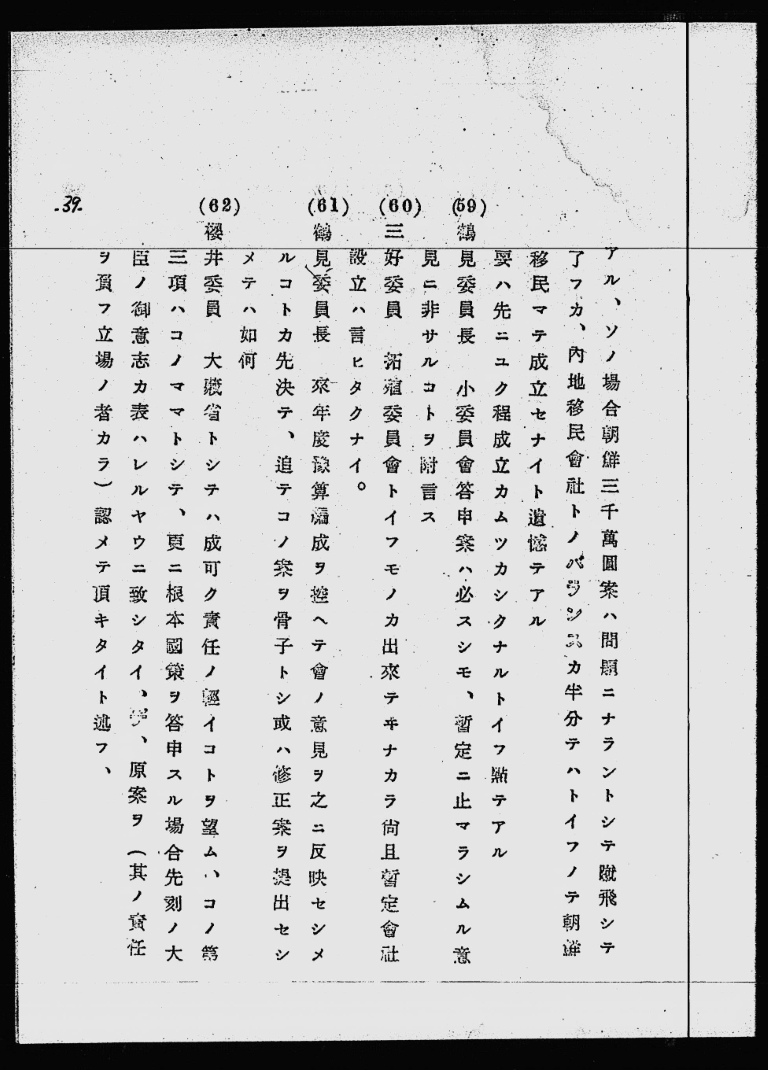 アル、ソノ場合朝鮮三千萬圓案ハ問題ニナラントシテ蹴飛シテ
了フカ、內地移民會社トノバランスカ半分テハトイフノテ朝鮮
移民マテ成立セナイト遺憾テアル
要ハ先ニユク程成立カムツカシクナルトイフ點テアル
(59) 鶴見委員長 小委員會答申案ハ必スシモ、暫定ニ止マラシムル意
見ニ非サルコトヲ附言ス
(60) 三好委員 拓殖委員會トイフモノカ出來テヰナカラ尙且暫定會社
設立ハ言ヒタクナイ。
(61) 鶴見委員長 來年度豫算編成ヲ控ヘテ會ノ意見ヲ之ニ反映セシメ
ルコトカ先決テ、追テコノ案ヲ骨子トシ或ハ修正案ヲ提出セシ
メテハ如何
(62) 櫻井委員 大藏省トシテハ成可ク責任ノ輕イコトヲ望ム、コノ第
三項ハコノママトシテ、更ニ根本國策ヲ答申スル場合先刻ノ大
臣ノ御意志カ表ハレルヤウニ致シタイ、デ、原案ヲ(其ノ責任
ヲ負フ立場ノ者カラ)認メテ頂キタイト述フ、
-39-